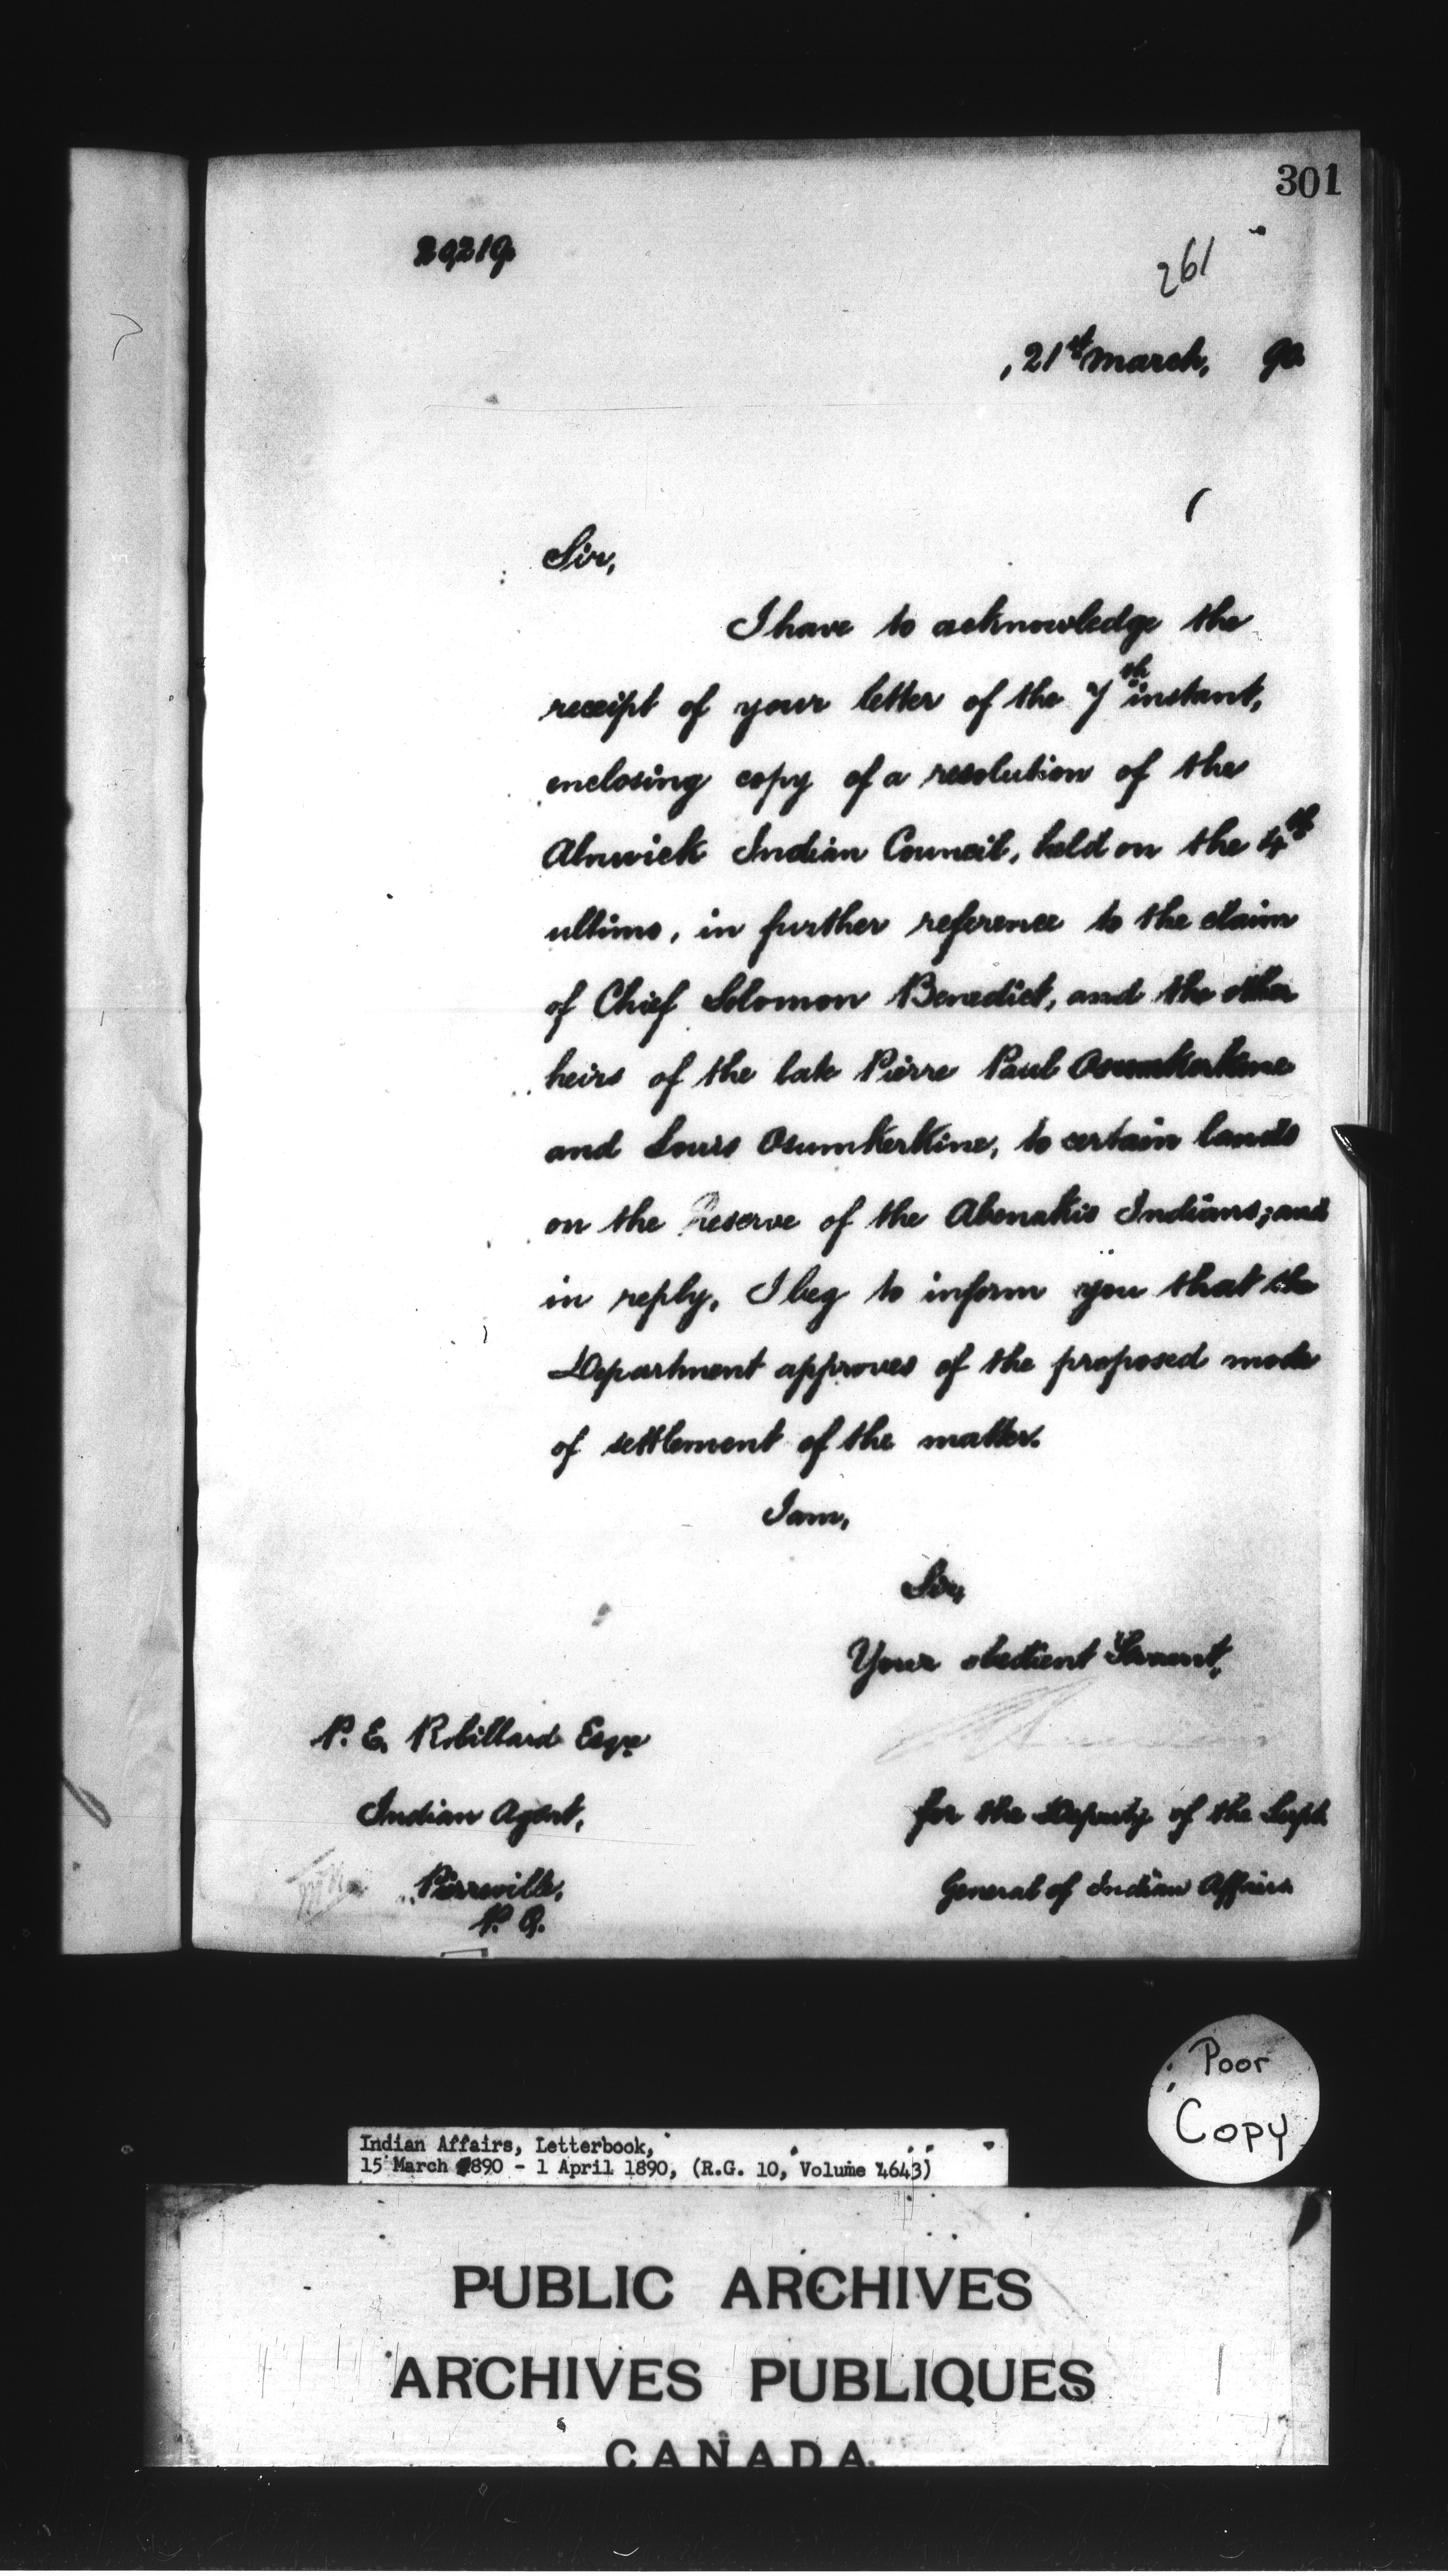 301
29219
261
, 21st March, 90
Sir,
I have to acknowledge the
receipt of your letter of the 7th instant,
enclosing copy of a resolution of the
Alnwick Indian Council, held on the 4th
ultimo, in further reference to the claim
of Chief Solomon Benedict, and the other
heirs of the late Pierre Paul Osumkerkine
and Louis Osumkerkine, to certain lands
on the Reserve of the Abenakis Indians; and
in reply, I beg to inform you that the
Department approves of the proposed mode
of settlement of the matter.
I am,
Sir,
Your obedient Servant,
P. E. Robillard Esqre
Indian Agent,
Pierreville,
P. Q.
for the Deputy of the Supt.
General of Indian Affairs
Poor
Copy
Indian Affairs, Letterbook,
15 March 1890 - 1 April 1890, (R.G. 10, Volume 4643)
PUBLIC ARCHIVES
ARCHIVES PUBLIQUES
CANADA